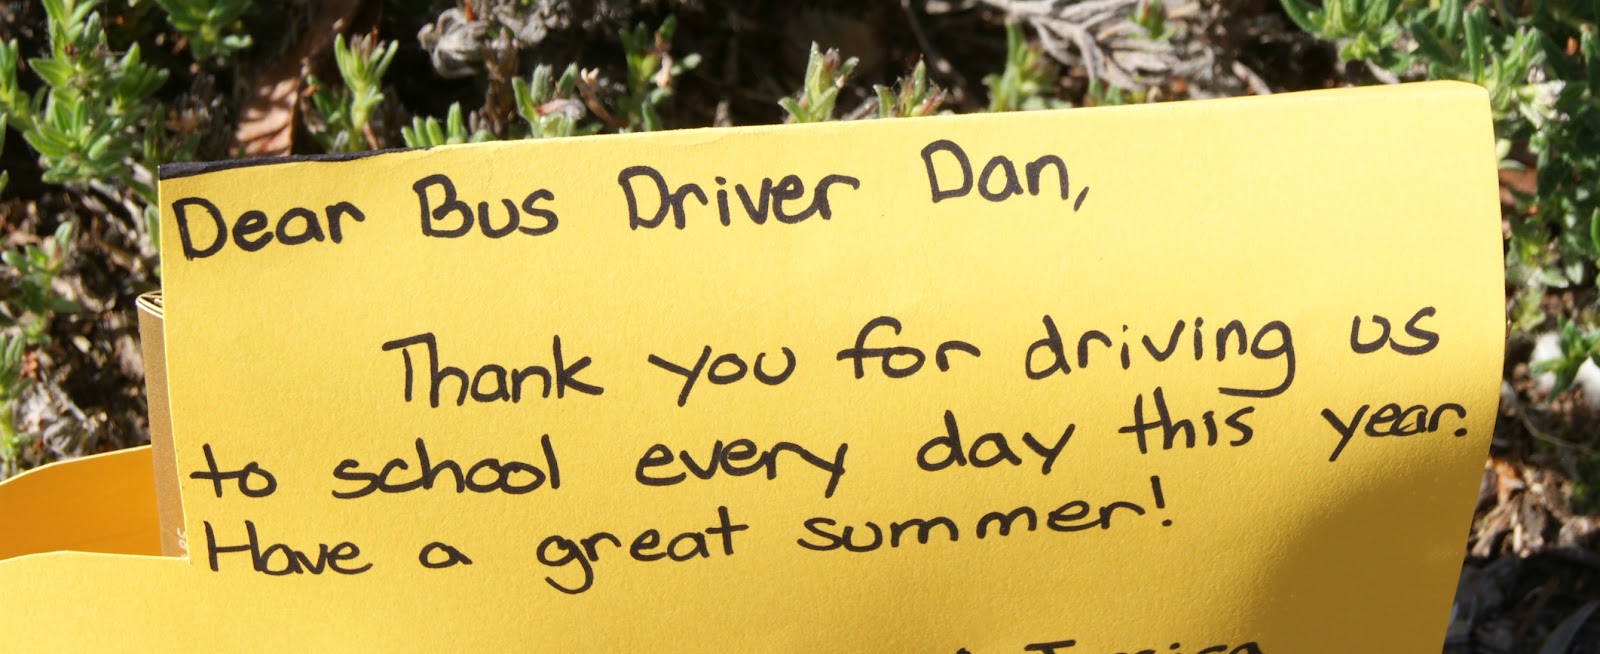 Dear Bus Driver Dan,
Thank you for driving us
to school every day this year.
Have a great summer!